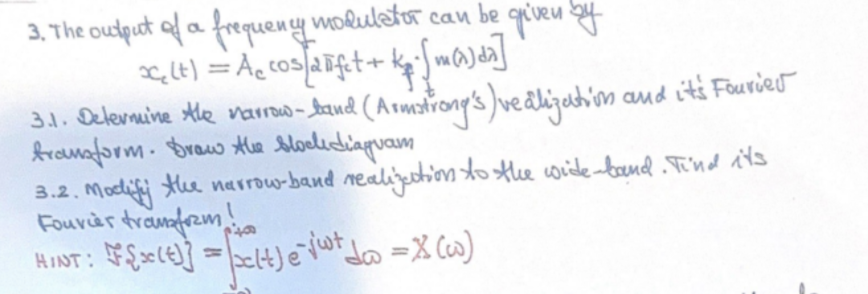 3. The output of a frequency modulator can be given by
x_c(t) = A_c cos[2πf_ct + k_f·∫_t m(λ)dλ]
3.1. Determine the narrow-band (Armstrong's) realization and its Fourier
transform. Draw the block diagram
3.2. Modify the narrow-band realization to the wide-band. Find its
Fourier transform!
HINT: F{x(t)} = ∫_{-∞}^{+∞} x(t) e^{-jωt} dω = X(ω)